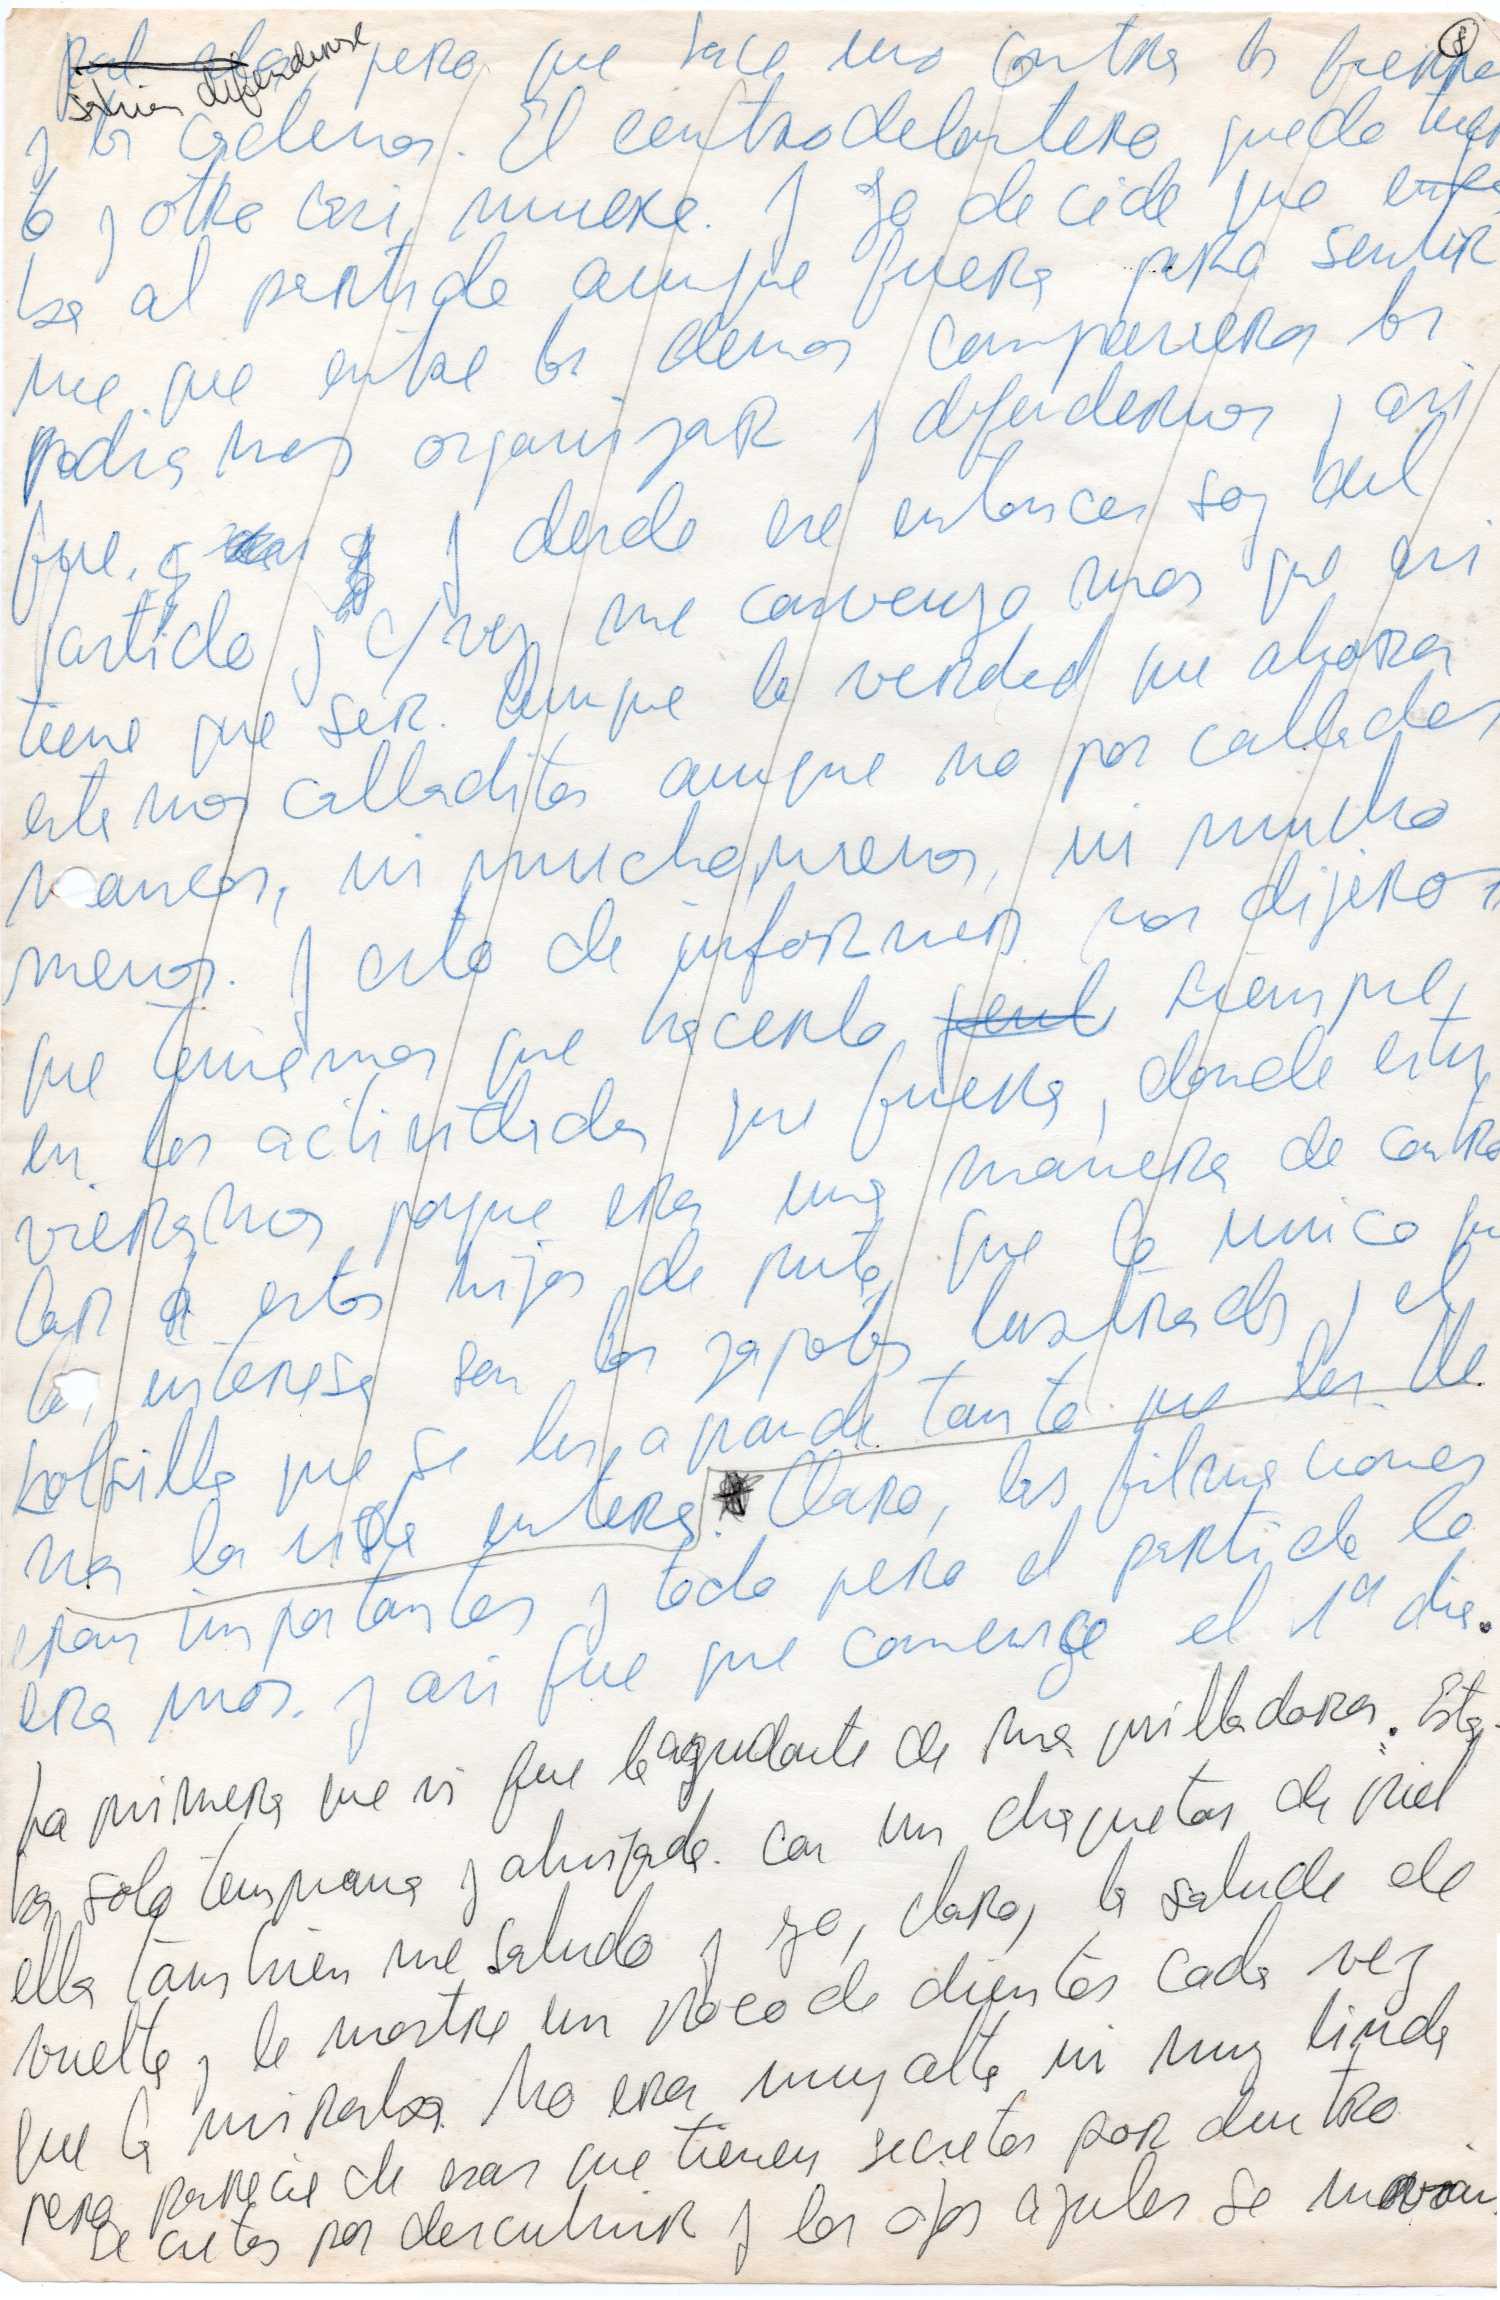 8
sabian defenderse
pero que hace uno contra los fierros
y las cadenas. El centrodelantero quedo tuer
to y otro casi muere. Y yo decidi que entra
ba al partido aunque fuera para sentir
me que entre los demas compañeros los
podiamos organizar y defendernos y asi
fue, y desde ese entonces soy del
partido y c/vez me convenzo mas que asi
tiene que ser. Aunque la verdad que ahora
estemos calladitos aunque no por callados
mancos, ni mucho menos, ni mucho
menos. Y esto de informar nos dijeron
que teniamos que hacerlo siempre,
en las actividades que fuera, donde estu
vieramos porque era una manera de contro
lar a estos hijos de puta que lo unico que
les interesa son los zapatos lustrados y el
bolsillo que se les agrande tanto que les lle
na la vida entera. Claro, las filmaciones
eran importantes y todo pero el partido lo
era mas. Y asi fue que comenzo el 1º dia.
La primera que vi fue la ayudante de maquilladora. Esta
ba sola temprana y ahijada. con un chaquetas de piel
ella tambien me saludo y yo, claro, la salude de
vuelta y le mostre un poco de dientes cada vez
que la miraba. No era muy alta ni muy linda
pero parecia de esas que tienen secretos por dentro
secretos por descubrir y los ojos azules se movian